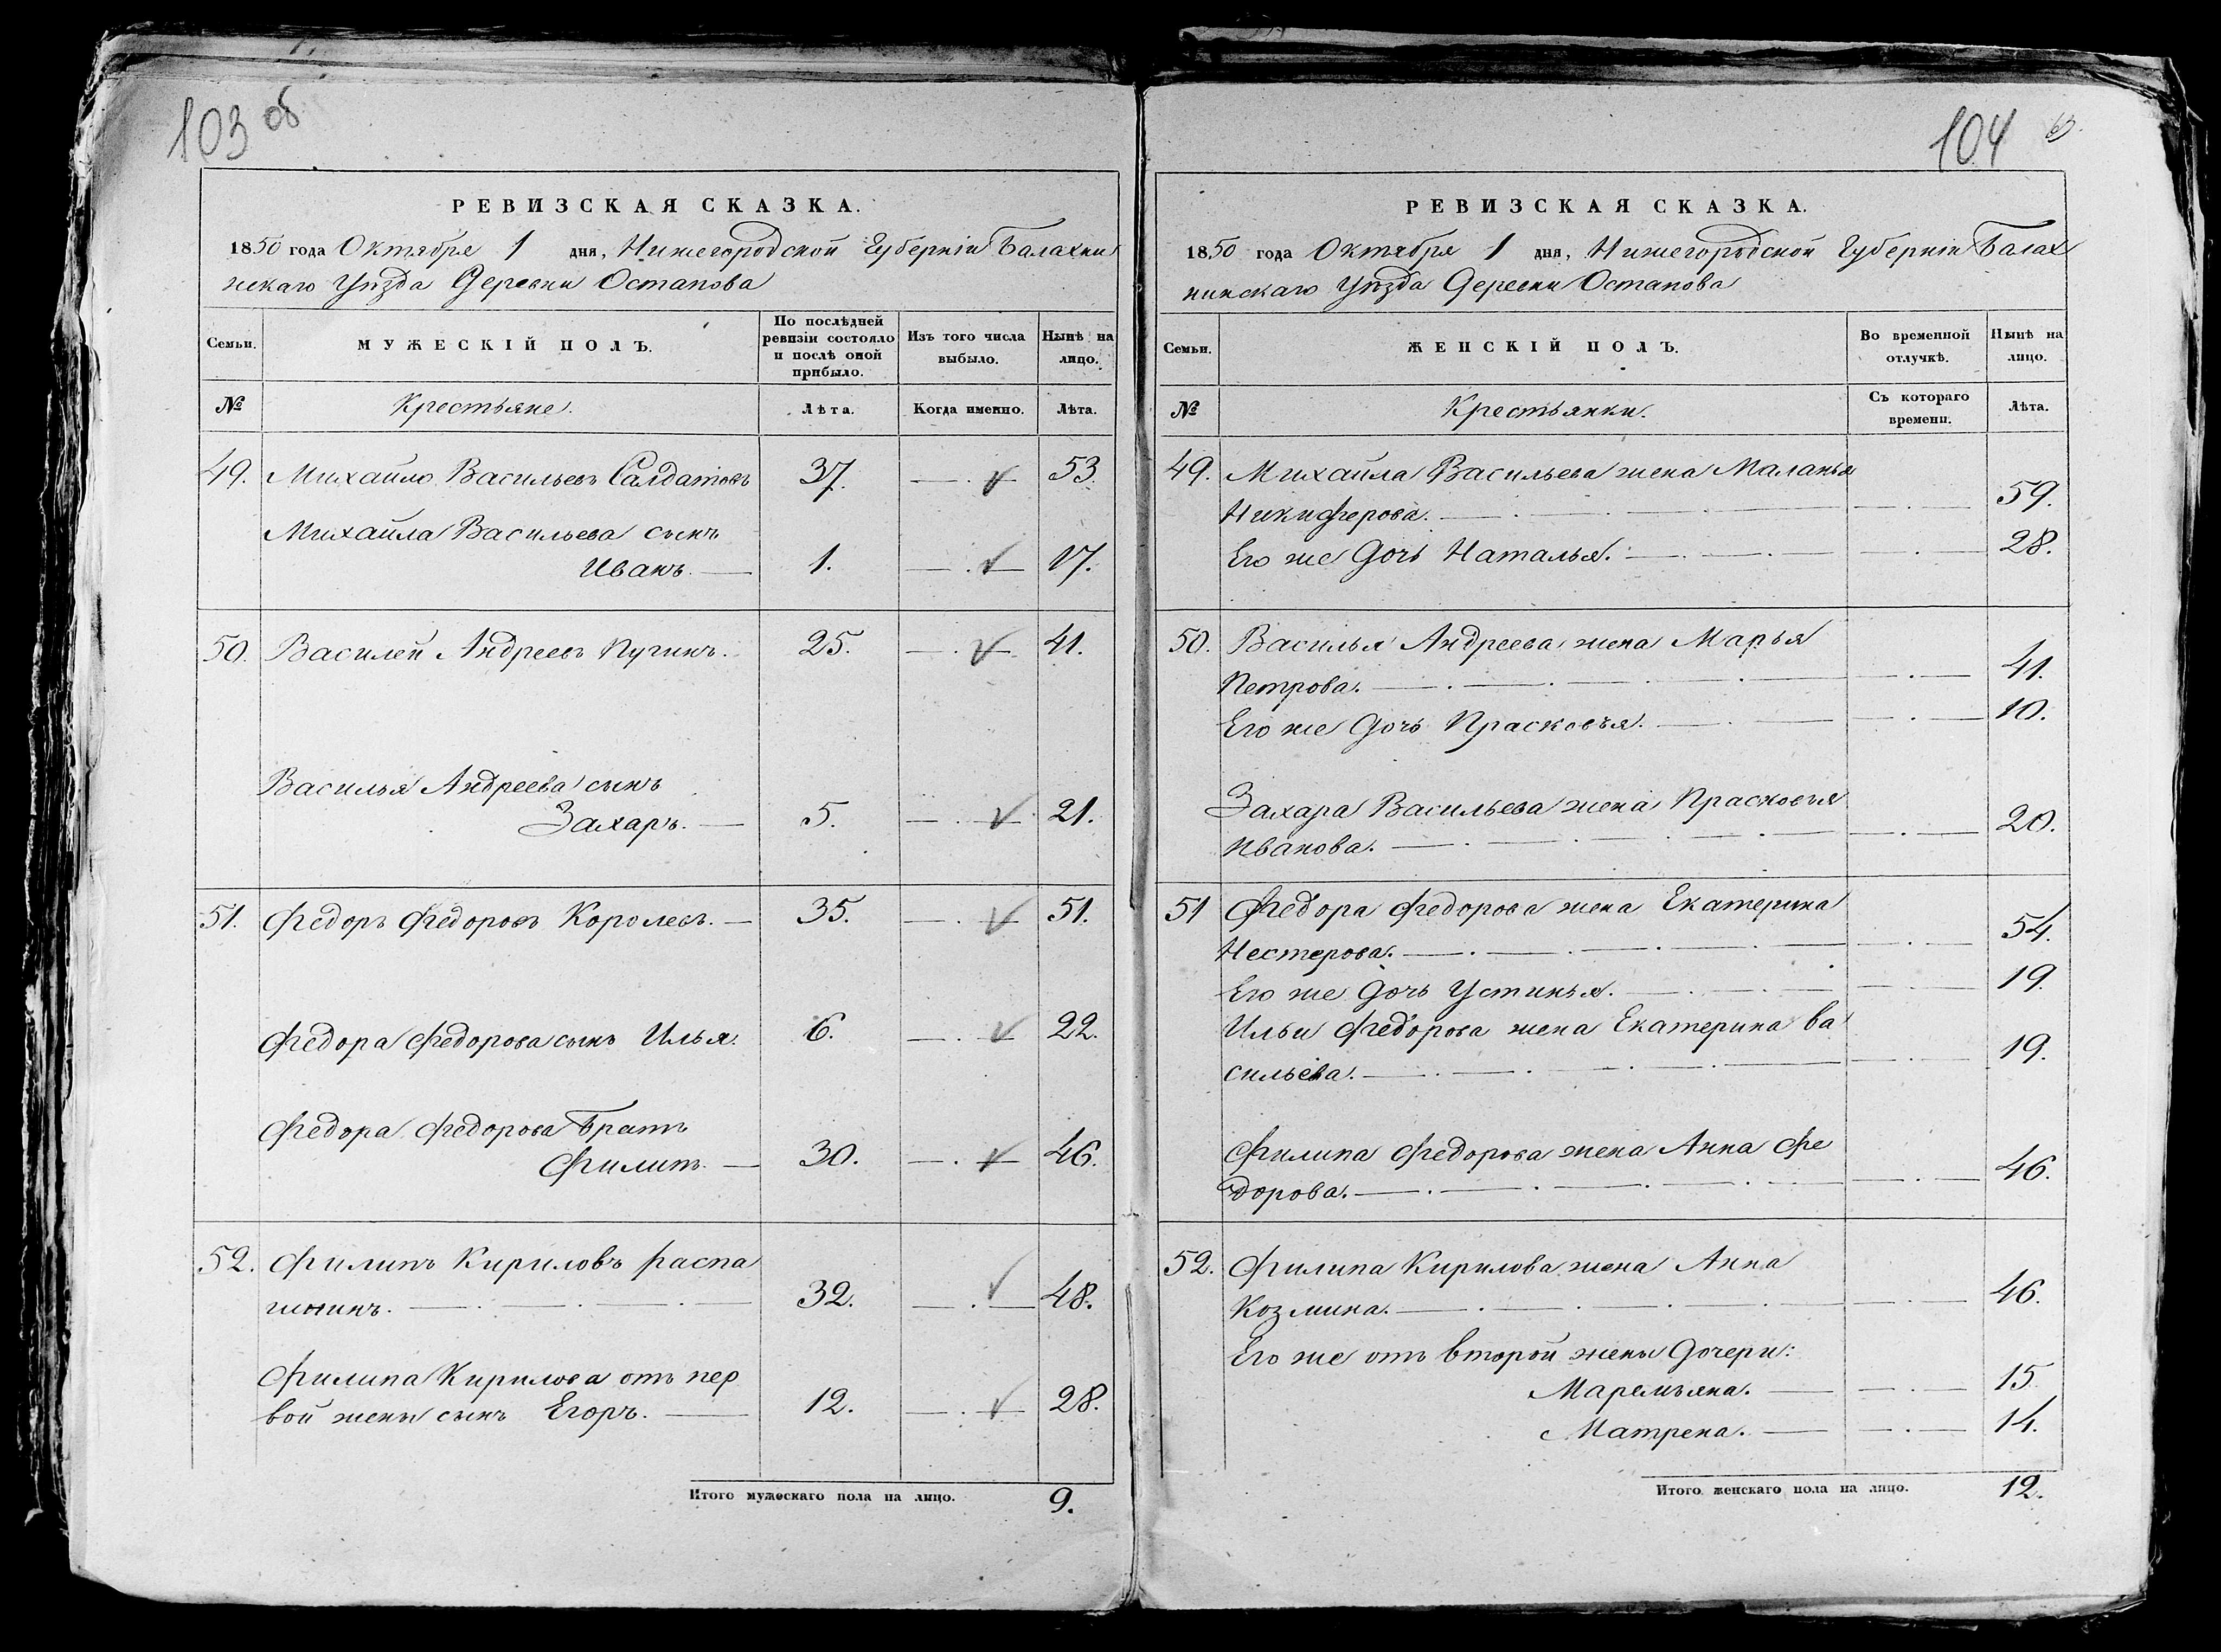 103 об
РЕВИЗСКАЯ СКАЗКА.
1850 года Октября 1 дня, Нижегородской Губерніи Балахни
нскаго Уѣзда Деревни Остапова
Семьи.
МУЖЕСКІЙ ПОЛЪ.
По послѣдней
ревизіи состояло
и послѣ оной
прибыло.
Изъ того числа
выбыло.
Нынѣ на
лицо.
№
Крестьяне.
Лѣта.
Когда именно.
Лѣта.
49. Михайло Васильевъ Салдатовъ 37. 53.
Михайла Васильева сынъ
Иванъ. 1. 17.
50. Василей Андреевъ Пугинъ. 25. 41.
Василья Андреева сынъ
Захаръ. 5. 21.
51. Федоръ Федоровъ Королевъ. 35. 51.
Федора Федорова сынъ Илья. 6. 22.
Федора Федорова братъ
Филипъ. 30. 46.
52. Филипъ Кириловъ Распа
32. 48.
Филипа Кирилова отъ пер
вой жены сынъ Егоръ. 12. 28.
Итого мужескаго пола на лицо. 9.
104
РЕВИЗСКАЯ СКАЗКА.
1850 года Октября 1 дня, Нижегородской Губерніи Балах
нинскаго Уѣзда Деревни Остапова
Семьи.
ЖЕНСКІЙ ПОЛЪ.
Во временной
отлучкѣ.
Нынѣ на
лицо.
№
Крестьянки.
Съ котораго
времени.
Лѣта.
49. Михайла Васильева жена Маланья
Никиферова. 59.
Его же дочь Наталья. 28.
50. Василья Андреева жена Марья
Петрова. 41.
Его же дочь Прасковья. 10.
Захара Васильева жена Прасковья
Иванова. 20.
51 Федора Федорова жена Екатерина
Нестерова. 54.
Его же дочь Устинья. 19.
Ильи Федорова жена Екатерина Ва
сильева. 19.
Филипа Федорова жена Анна Фе
дорова. 46.
52. Филипа Кирилова жена Анна
Козмина. 46.
Его же отъ второй жены дочери:
Маремьяна. 15.
Матрена. 14.
Итого женскаго пола на лицо. 12.